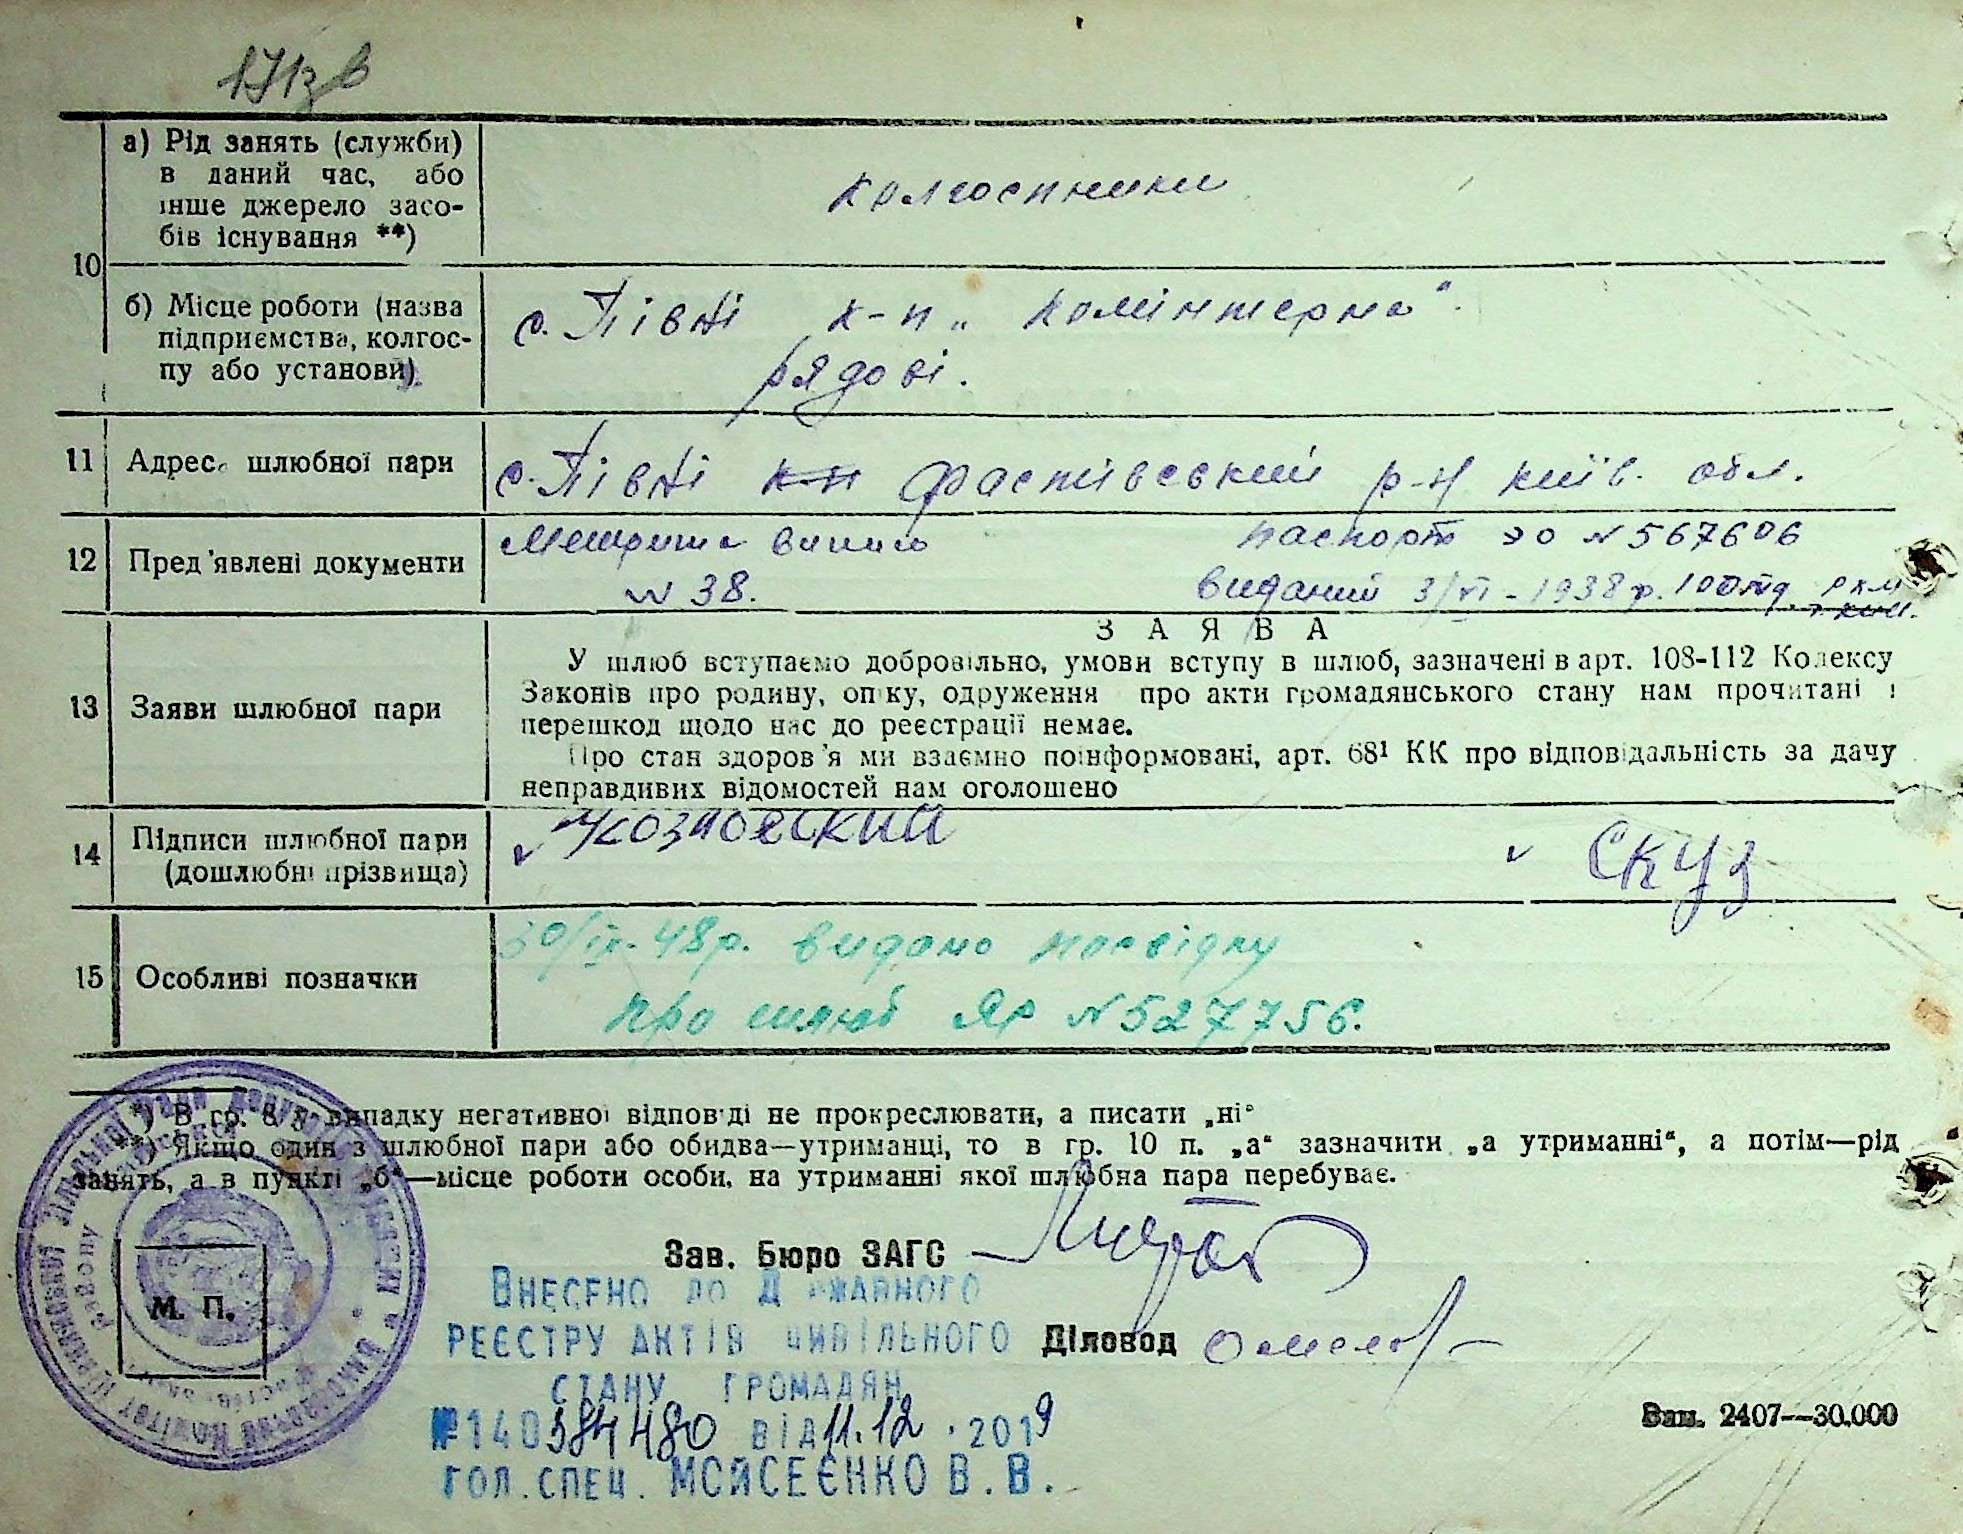 171зв
10
а) Рід занять (служби)
в даний час, або
інше джерело засо-
бів існування **)
колгоспники
б) Місце роботи (назва
підприємства, колгос-
пу або установи)
с. Півні к-п „Комінтерна".
рядові.
11 Адреса шлюбної пари
с. Півні кп Фастівський р-н київ. обл.
12 Пред'явлені документи
Метрична випись
N 38.
паспорт ЭО N 567606
виданий 3/VI-1938р. 10 отд. РКМ
13 Заяви шлюбної пари
ЗАЯВА
У шлюб вступаємо добровільно, умови вступу в шлюб, зазначені в арт. 108-112 Кодексу
Законів про родину, опіку, одруження про акти громадянського стану нам прочитані і
перешкод щодо нас до реєстрації немає.
Про стан здоров'я ми взаємно поінформовані, арт. 68¹ КК про відповідальність за дачу
неправдивих відомостей нам оголошено
14 Підписи шлюбної пари
(дошлюбні прізвища)
Скуз
15 Особливі позначки
30/IX-48р. видано посвідку
про шлюб ЯР N 527756.
*) В гр. 8 в випадку негативної відповіді не прокреслювати, а писати „ні"
**) Якщо один з шлюбної пари або обидва—утриманці, то в гр. 10 п. „а" зазначити „а утриманні", а потім—рід
занять, а в пункті „б"—місце роботи особи, на утриманні якої шлюбна пара перебуває.
Зав. Бюро ЗАГС
М. П.
Діловод
Внесено до Державного
реєстру актів цивільного
стану громадян
№140384480 від 11.12.2019
гол.спец. Мойсеєнко В.В.
Зам. 2407—30.000